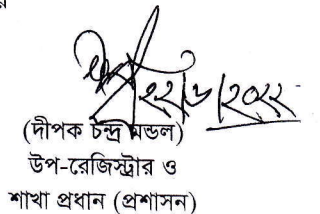 ২২/৬/২০২২
(দীপক চন্দ্র মন্ডল)
উপ-রেজিস্ট্রার ও
শাখা প্রধান (প্রশাসন)